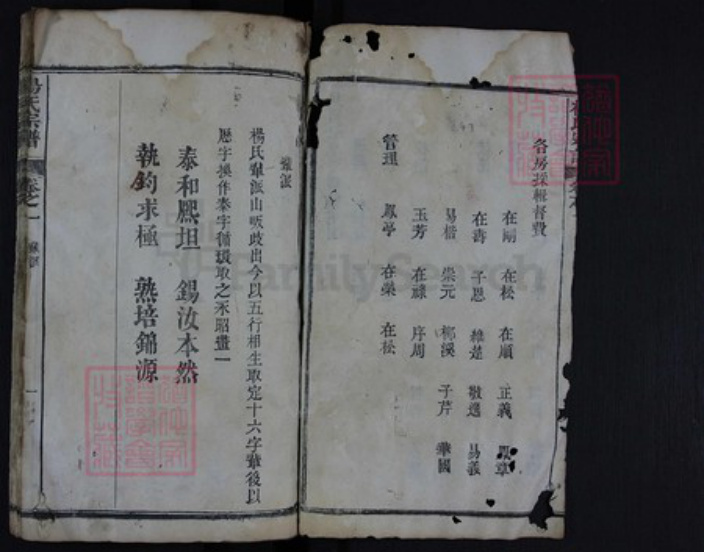 各房採輯督費
在剛 在松 在順 正義
在壽 子恩 維楚 敬邁 易義
易楷 崇元 郁溪 子芹 華國
玉芳 在祿 序周
管理 鳳亭 在榮 在松
輩派
楊氏輩派山畈歧出今以五行相生取定十六字輩後以
歷字換作泰字循環取之永昭畫一
泰和熙坦 錫汝本然
執鈞求極 熟培錦源
楊氏宗譜 卷之一 輩派 一
FamilySearch